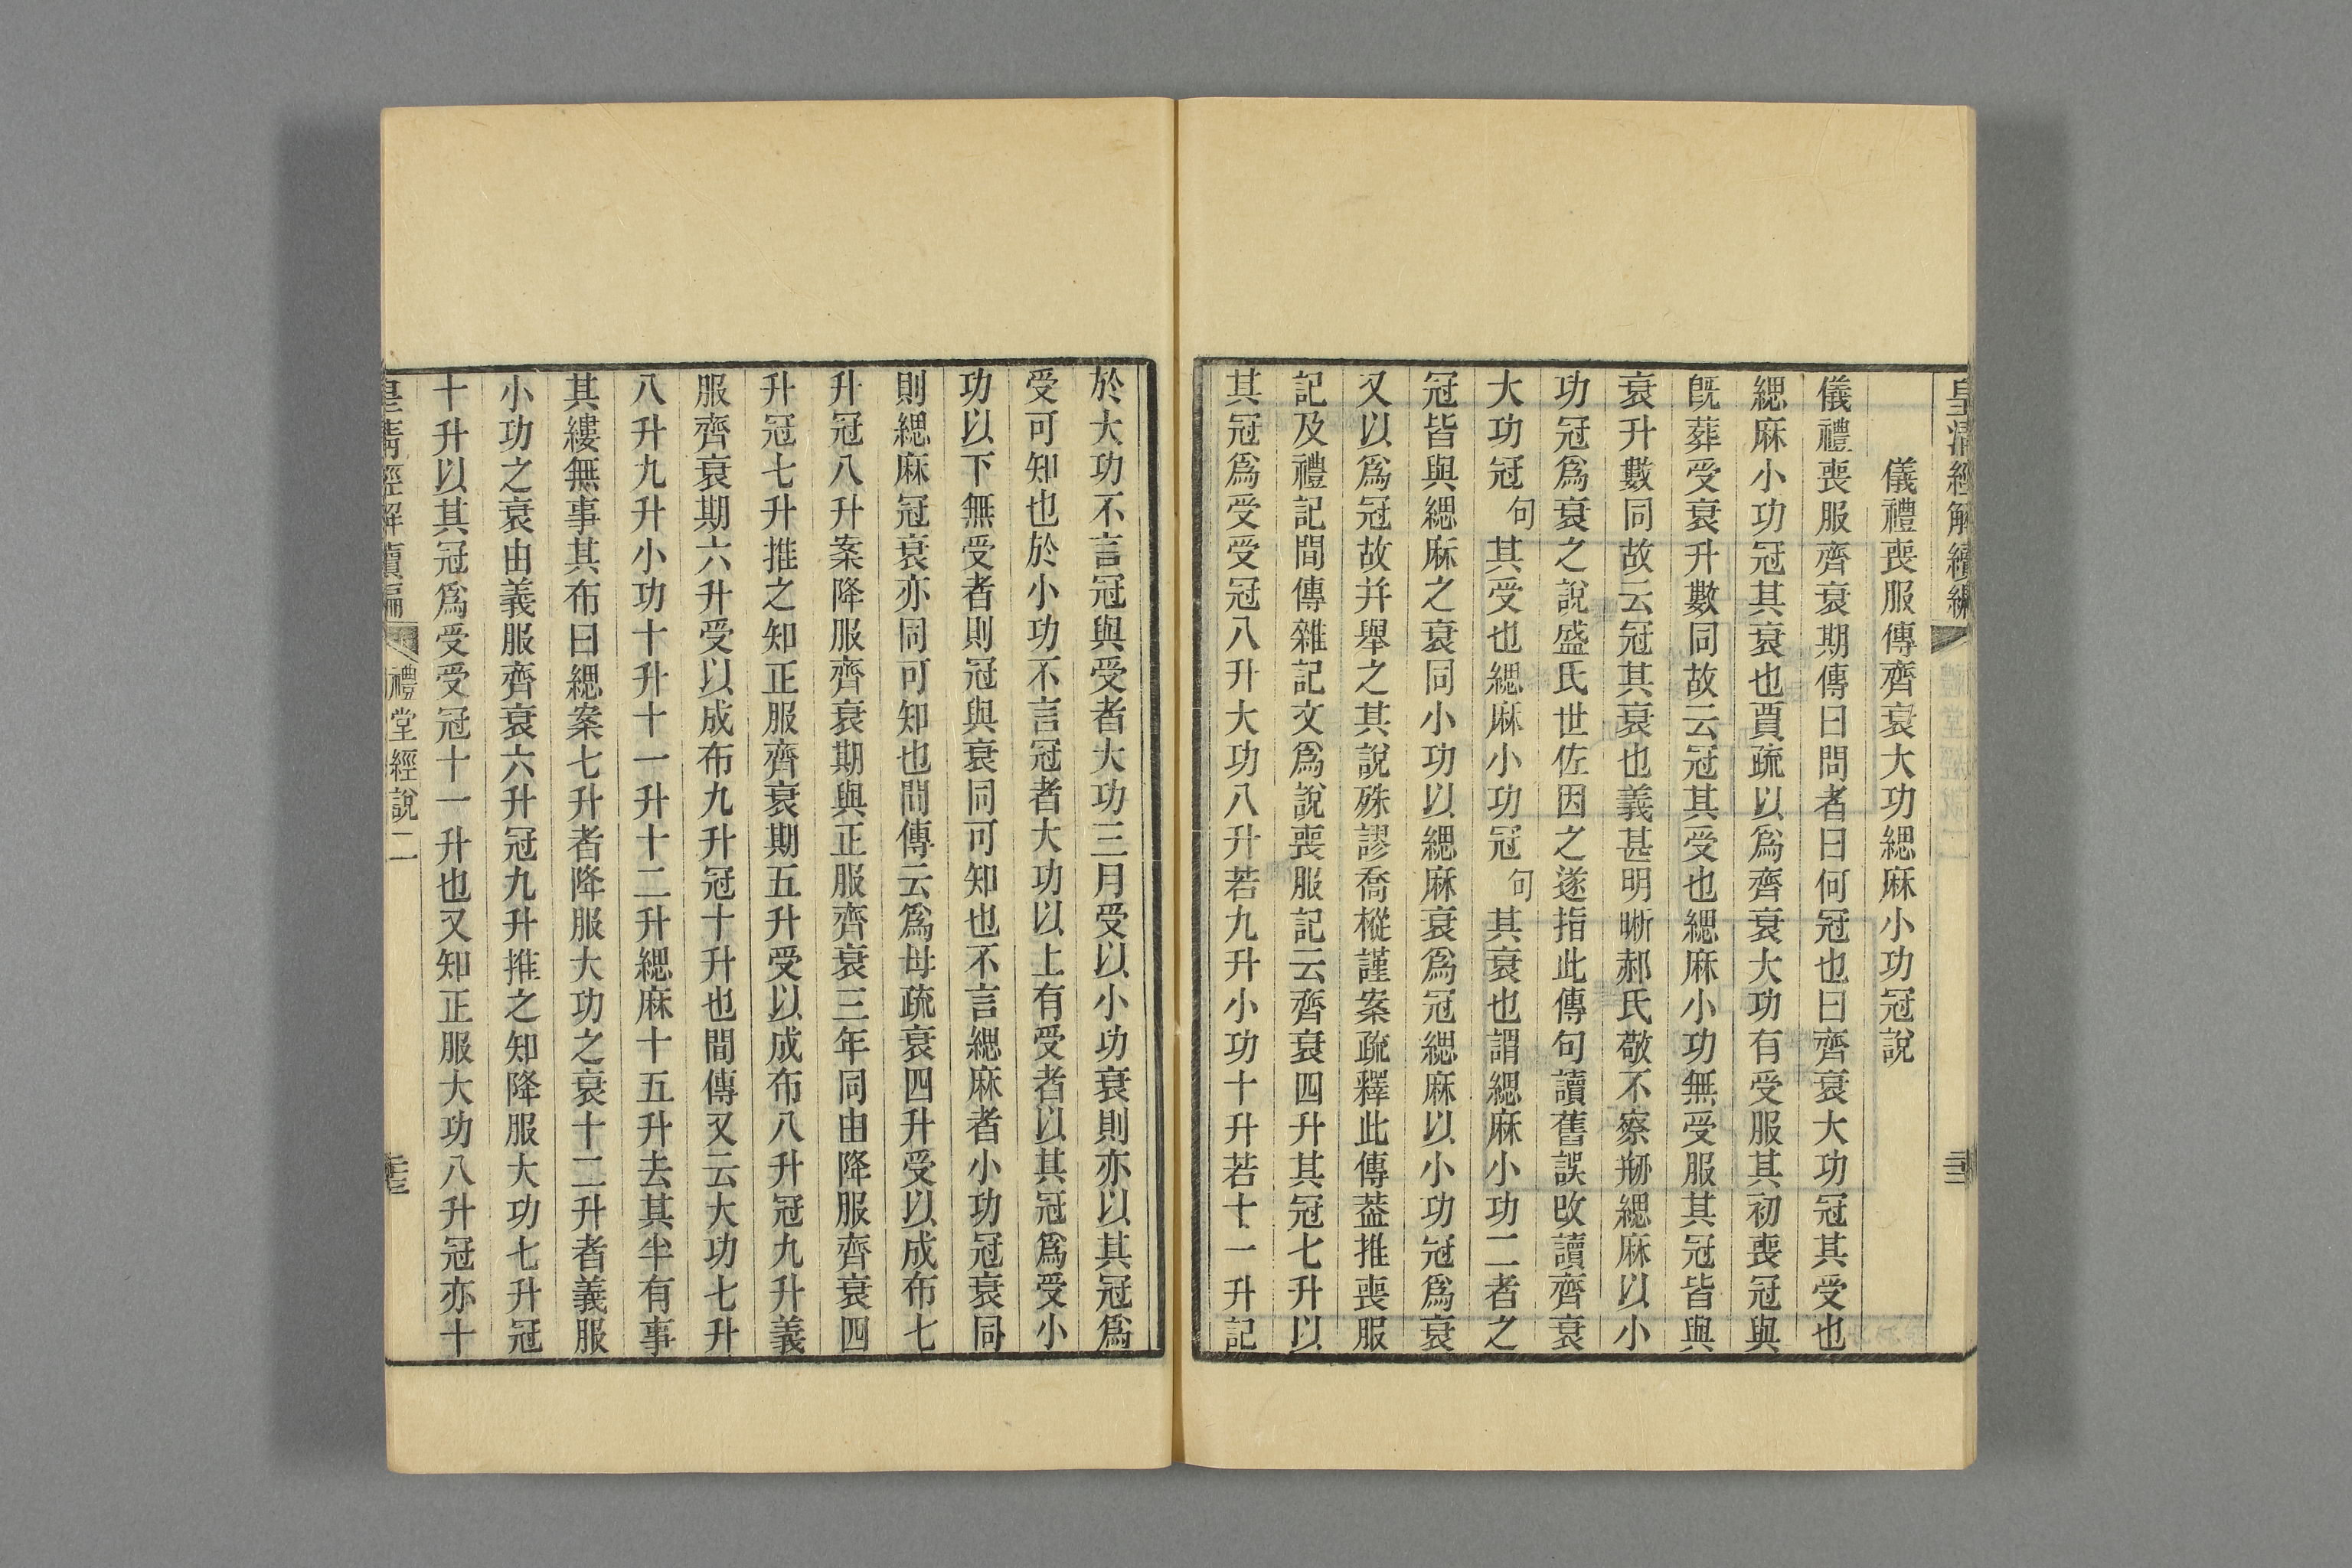 皇清經解續編
三
儀禮喪服傳齊衰大功緦麻小功冠說
儀禮喪服齊衰期傳曰問者曰何冠也曰齊衰大功冠其受也
緦麻小功冠其衰也賈疏以爲齊衰大功有受服其初喪冠與
旣葬受衰升數同故云冠其受也緦麻小功無受服其冠皆與
衰升數同故云冠其衰也義甚明晰郝氏敬不察㓱緦麻以小
功冠爲衰之說盛氏世佐因之遂指此傳句讀舊誤改讀齊衰
大功冠句其受也緦麻小功冠句其衰也謂緦麻小功二者之
冠皆與緦麻之衰同小功以緦麻衰爲冠緦麻以小功冠爲衰
又以爲冠故并舉之其說殊謬喬樅謹案疏釋此傳葢推喪服
記及禮記間傳雜記文爲說喪服記云齊衰四升其冠七升以
其冠爲受受冠八升大功八升若九升小功十升若十一升記
於大功不言冠與受者大功三月受以小功衰則亦以其冠爲
受可知也於小功不言冠者大功以上有受者以其冠爲受小
功以下無受者則冠與衰同可知也不言緦麻者小功冠衰同
則緦麻冠衰亦同可知也間傳云爲母疏衰四升受以成布七
升冠八升案降服齊衰期與正服齊衰三年同由降服齊衰四
升冠七升推之知正服齊衰期五升受以成布八升冠九升義
服齊衰期六升受以成布九升冠十升也間傳又云大功七升
八升九升小功十升十一升十二升緦麻十五升去其半有事
其縷無事其布曰緦案七升者降服大功之衰十二升者義服
小功之衰由義服齊衰六升冠九升推之知降服大功七升冠
十升以其冠爲受受冠十一升也又知正服大功八升冠亦十
皇清經解續編
禮堂經說二